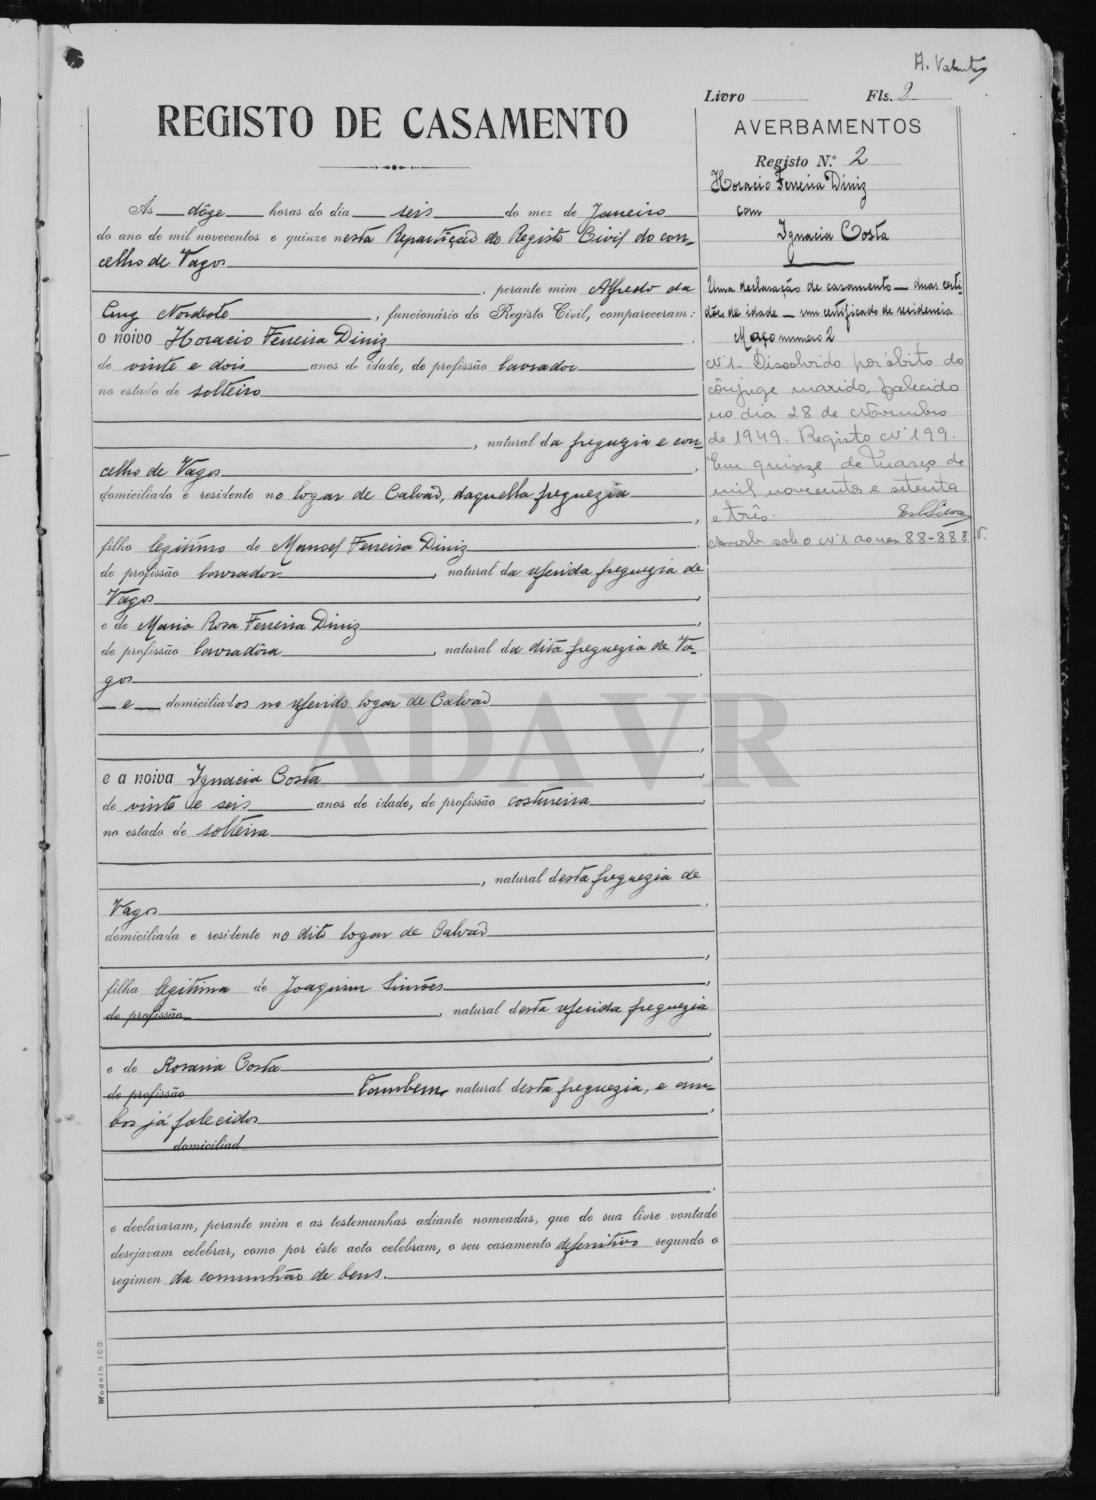 A. Valente
Livro Fls. 2
REGISTO DE CASAMENTO
AVERBAMENTOS
Registo N.º 2
Horacio Ferreira Diniz
com
Ignacia Costa
Uma declaração de casamento — duas certi-
dões de idade — um certificado de residencia
Maço numero 2
Nº 1 - Dissolvido por óbito do
cônjuge marido, falecido
no dia 28 de Novembro
de 1949. Registo Nº 199.
Em quinze de Março de
mil novecentos e setenta
e três.
Averb. sob o Nº 1 ao 88-888
Ás dôze horas do dia seis do mez de Janeiro
do ano de mil novecentos e quinze nesta Repartição do Registo Civil do con-
celho de Vagos
, perante mim Alfredo da
Cruz Nordeste, funcionário do Registo Civil, compareceram:
o noivo Horacio Ferreira Diniz
de vinte e dois anos de idade, de profissão lavrador
no estado de solteiro
, natural da freguezia e con-
celho de Vagos,
domiciliado e residente no logar de Calvão, daquella freguezia
,
filho legitimo de Manoel Ferreira Diniz,
de profissão lavrador, natural da referida freguezia de
Vagos,
e de Maria Rosa Ferreira Diniz,
de profissão lavradôra, natural da dita freguezia de Va-
gos,
— e — domiciliados no referido logar de Calvão
,
ADAVR
e a noiva Ignacia Costa,
de vinte e seis anos de idade, de profissão costureira,
no estado de solteira
, natural desta freguezia de
Vagos,
domiciliada e residente no dito logar de Calvão
,
filha legitima de Joaquim Simões,
de profissão, natural desta referida freguezia
,
e de Rosaria Costa,
de profissão tambem, natural desta freguezia, e am-
bos já falecidos,
domiciliad
.
e declararam, perante mim e as testemunhas adiante nomeadas, que de sua livre vontade
desejavam celebrar, como por êste acto celebram, o seu casamento defenitivo segundo o
regimen da comunhão de bens.
Modelo 103